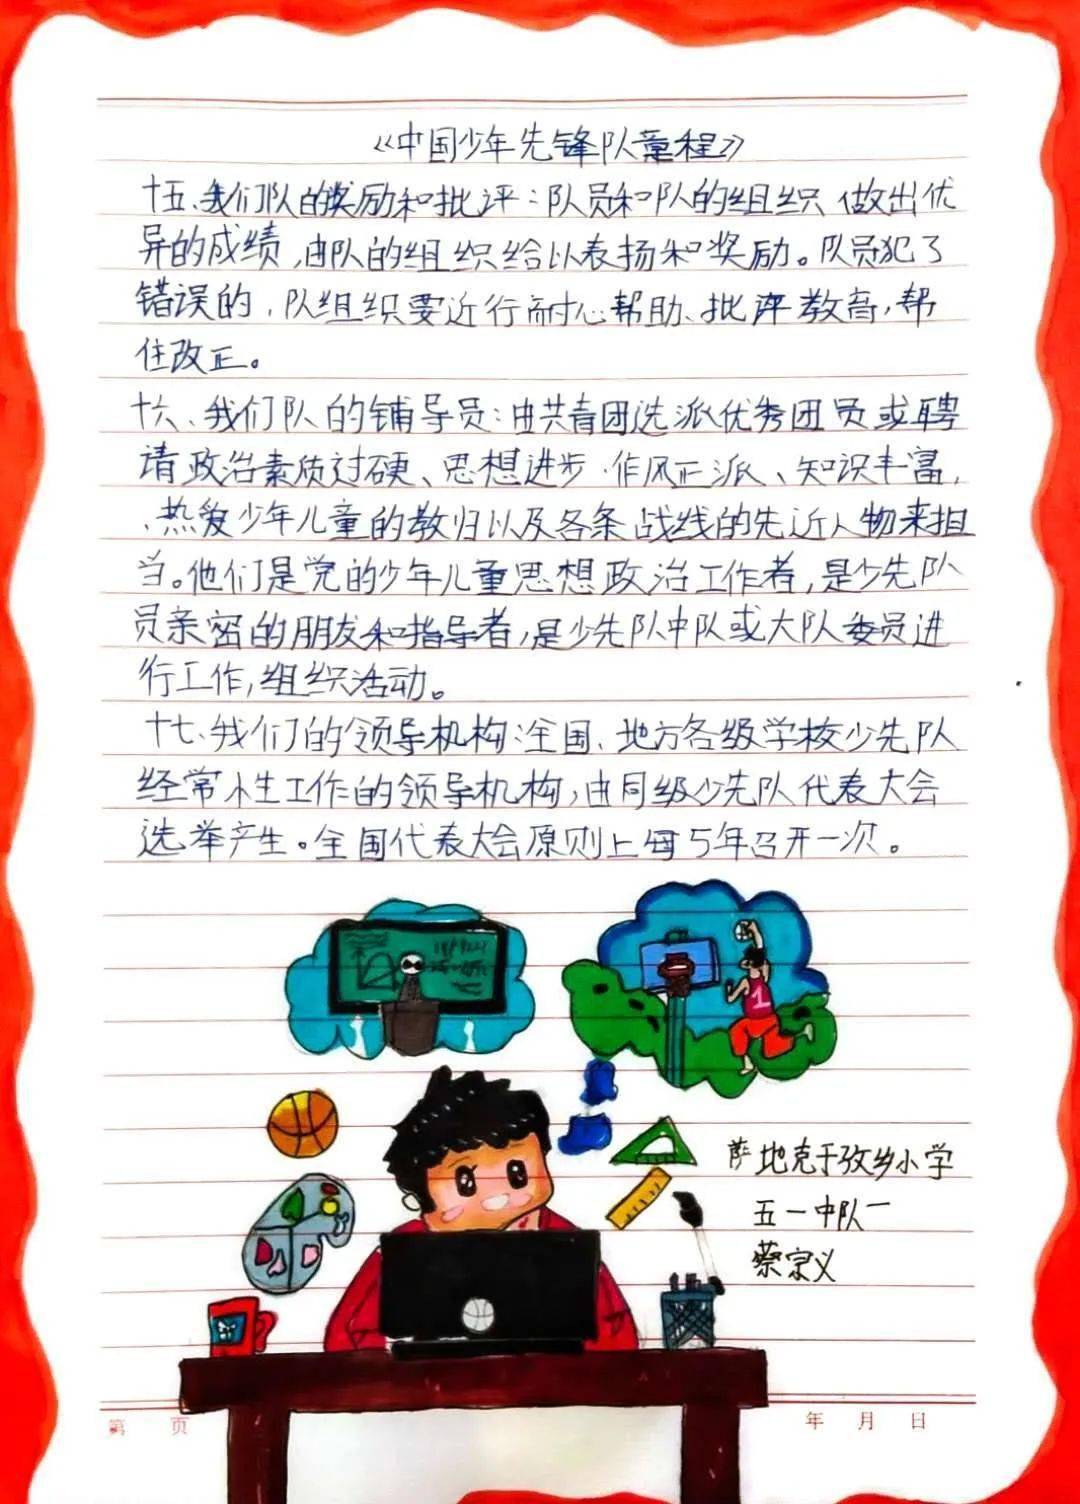 《中国少年先锋队章程》
十五、我们队的奖励和批评：队员和队的组织做出优
异的成绩，由队的组织给以表扬和奖励。队员犯了
错误的，队组织要近行耐心帮助、批评教育，帮
住改正。
十六、我们队的铺导员：由共青团选派优秀团员或聘
请政治素质过硬、思想进步、作风正派、知识丰富，
、热爱少年儿童的教归以及各条战线的先近人物来担
当。他们是党的少年儿童思想政治工作者，是少先队
员亲密的朋友和指导者，是少先队中队或大队委员进
行工作，组织活动。
十七、我们的领导机构：全国、地方各级学校少先队
经常性工作的领导机构，由同级少先队代表大会
选举产生。全国代表大会原则上每5年召开一次。
萨地克于孜乡小学
五一中队一
蔡宗义
1
第 页
年 月 日